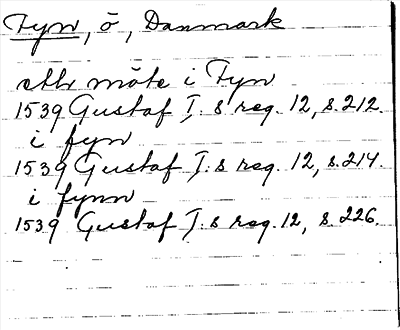 Fyn, ö, Danmark
ett möte i Fyn
1539 Gustaf I:s reg. 12, s. 212.
i fyn
1539 Gustaf I:s reg. 12, s. 214.
i fynn
1539 Gustaf I:s reg. 12, s. 226.